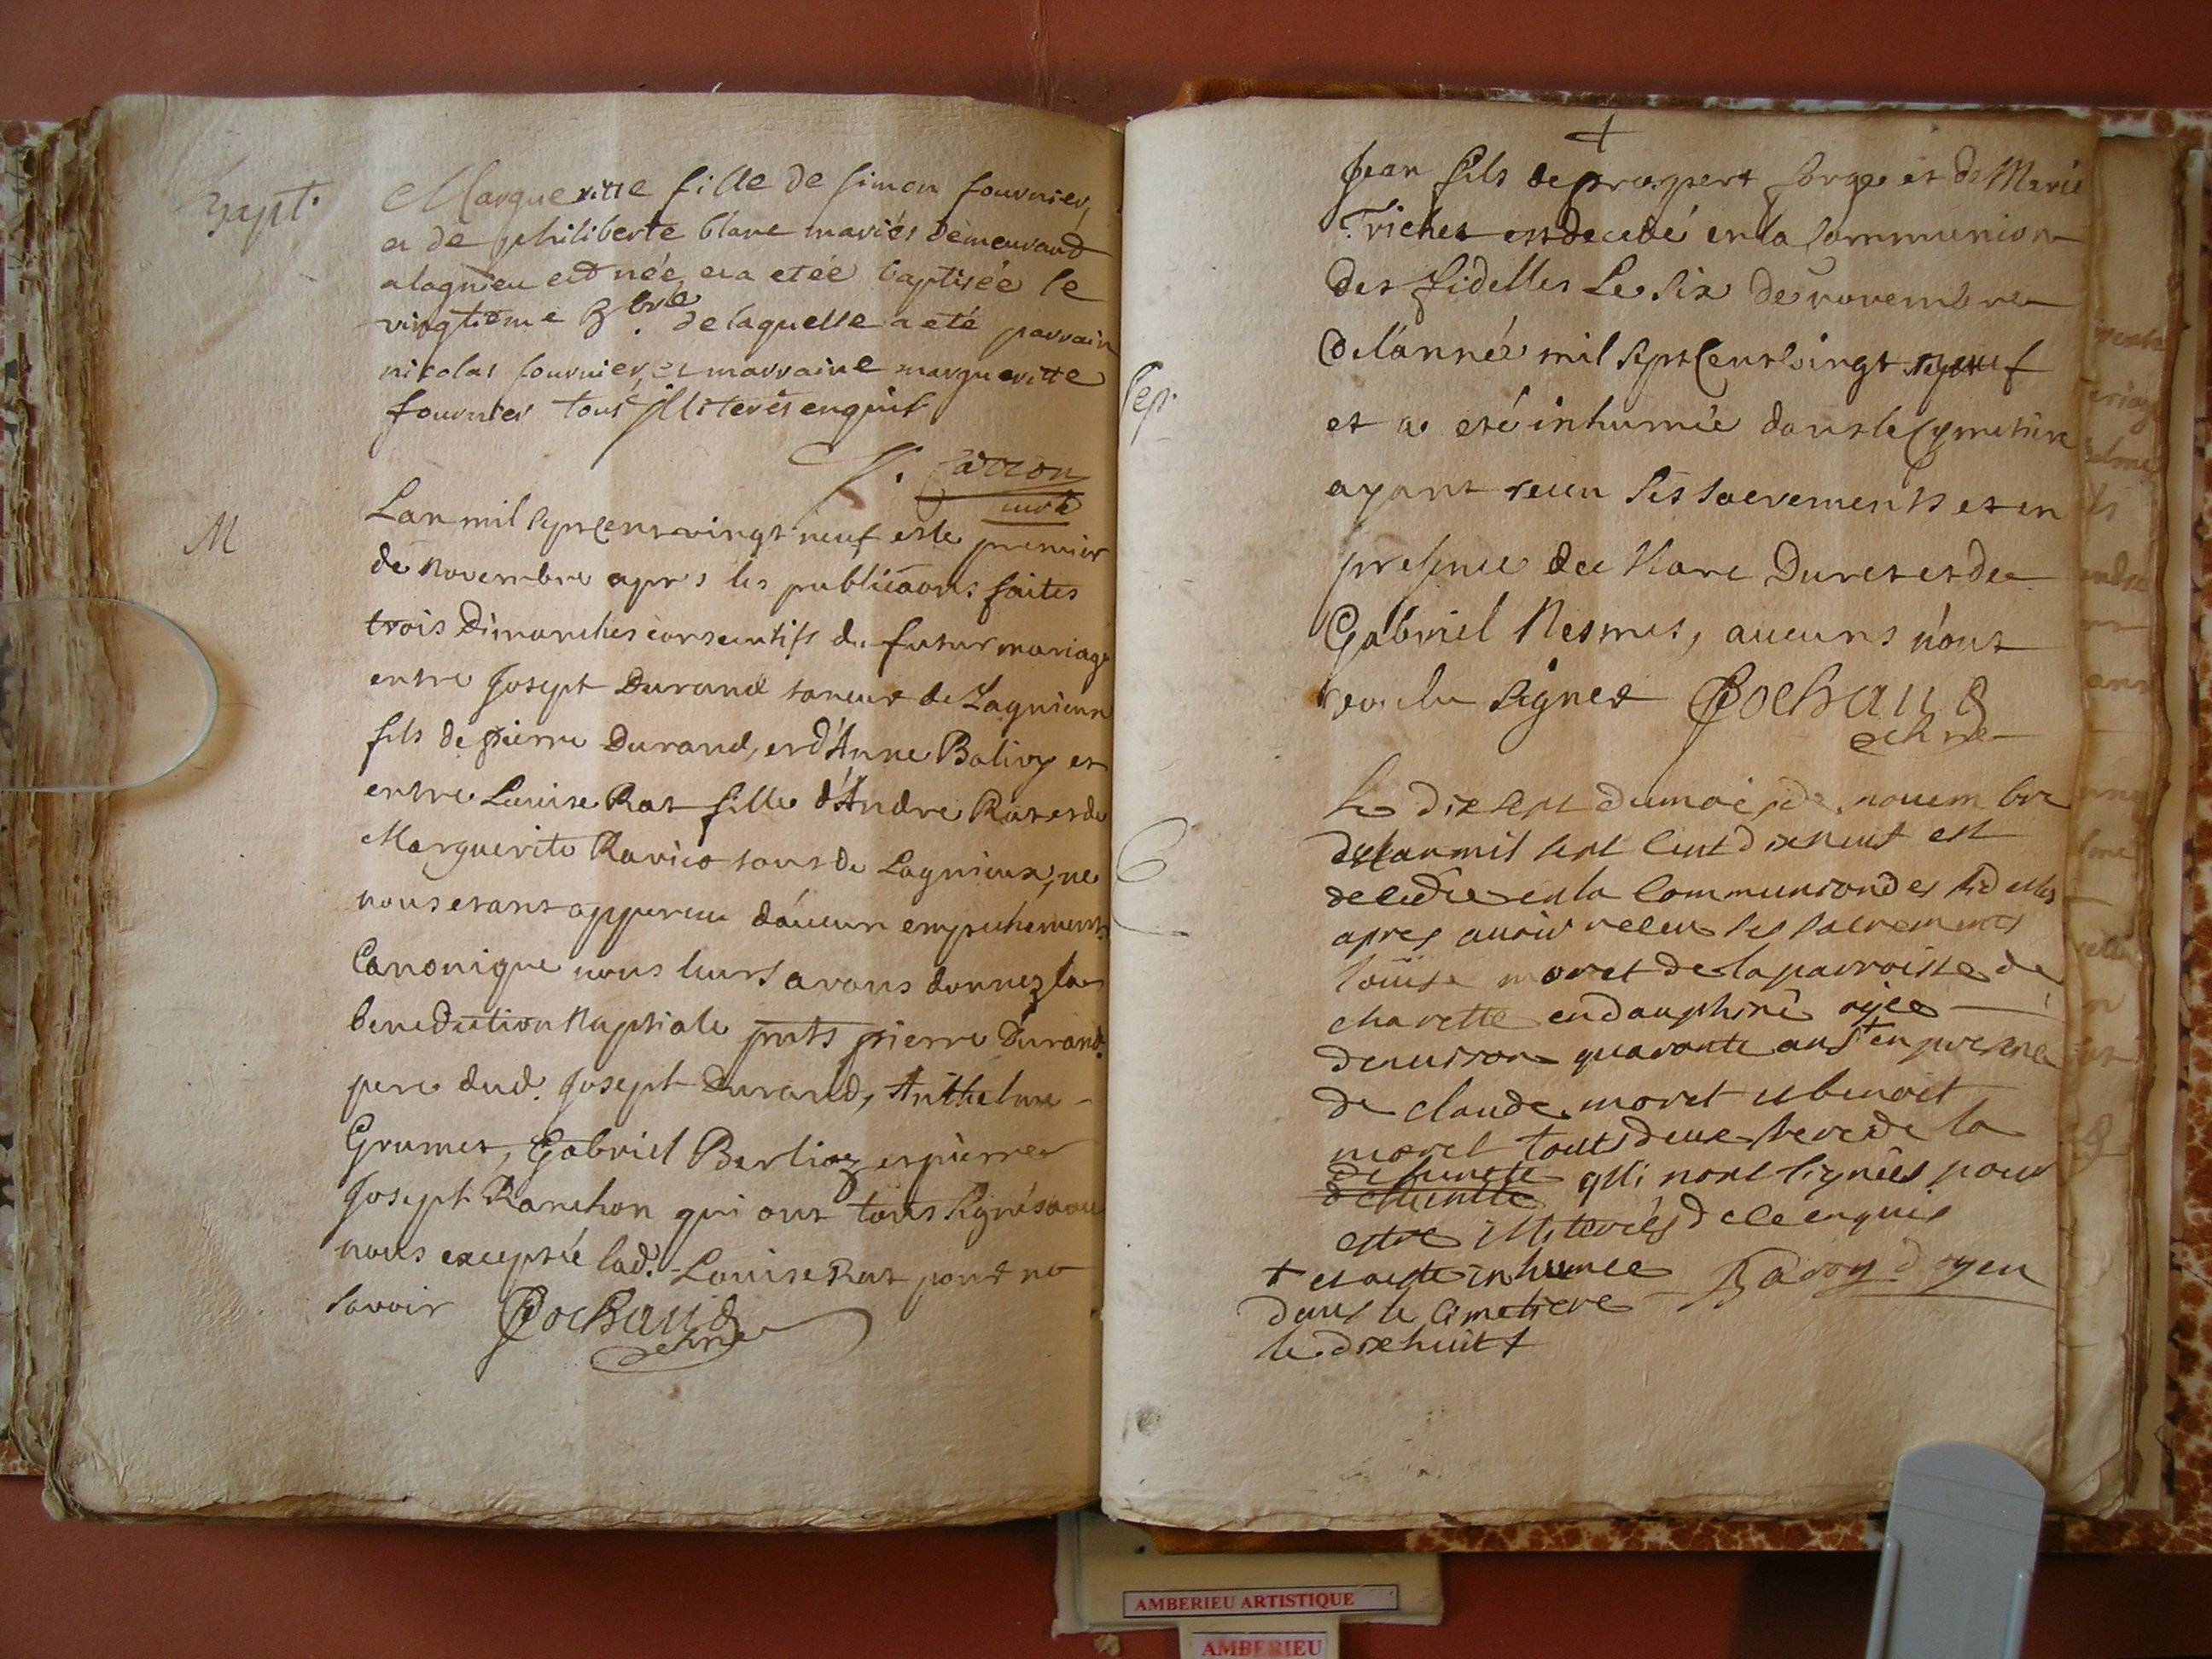 Bapt.
Margueritte fille de simon fournier,
et de philiberte blanc mariés demeurand
a lagnieu est née, et a etée baptisée le
vingtieme 8bre. de laquelle a eté parrain
nicolas fournier, et marraine margueritte
fournier tous illiterés enquis
curé
M
Lan mil sept cent vingt neuf et le premier
de novembre apres les publicaons faites
trois dimanches consecutifs du futur mariage
entre Joseph Durand taneur de Lagnieux
fils de pierre Durand, et d'Anne Balivy et
entre Louise Rat fille d'Andre Rat et de
Marguerite Ravico tous de Lagnieux, ne
nous etant apparu d'aucun empechement
Canonique nous leurs avons donnez la
benediction Nuptiale pnts pierre Durand.
pere dud. Joseph Durand, Anthelme
Grumet, Gabriel Berlioz et pierre
Joseph Ranchon qui ont tous signés avec
nous exceptée lad. Louise Rat pour ne
savoir Cochaud
Sep.
Jean fils de prospert forge et de Marie
Trichet est decedé en la Communion
des fidelles Le six de novembre
de l'année mil sept cent vingt neuf
et a eté inhumé dans le Cymetiere
ayant receu ses sacrements et en
presence de Marc Duret et de
Gabriel Nesmes, aucuns n'ont
voulu signer Cochaud
Le dix sept du mois de novembre
de lan mil sept cent dixneuf est
decedée en la Communion des fidelles
apres avoir receu ses sacrements
louise moret de la parroisse de
charette en dauphiné agée
denviron quarante ans + en presence
de claude moret et benoit
moret touts deux frere de la
defuncte
defuncte qui n'ont signées pour
estre illiterés de ce enquis
+ et a este inhumee
dans le cimetiere
le dixhuit +
AMBERIEU ARTISTIQUE
AMBERIEU